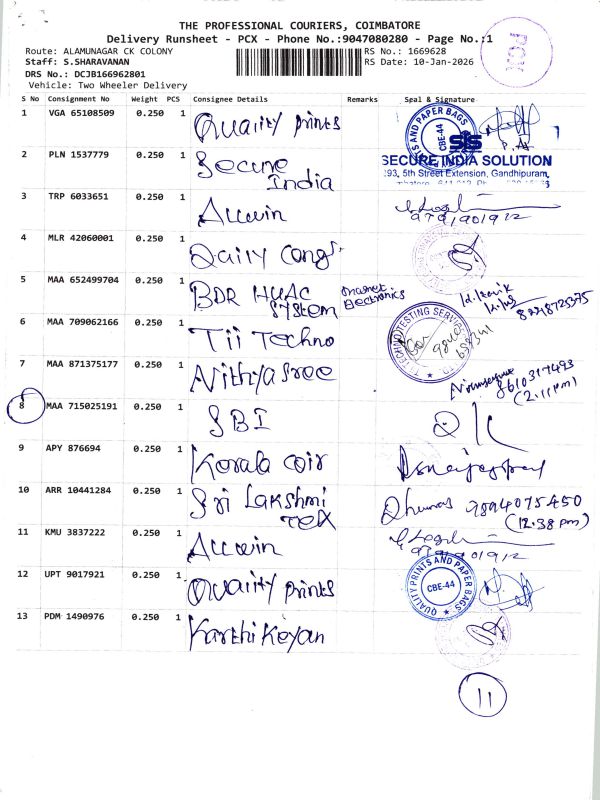 THE PROFESSIONAL COURIERS, COIMBATORE
Delivery Runsheet - PCX - Phone No.:9047080280 - Page No.:1
PCX
Route: ALAMUNAGAR CK COLONY
RS No.: 1669628
Staff: S.SHARAVANAN
RS Date: 10-Jan-2026
DRS No.: DCJB166962801
Vehicle: Two Wheeler Delivery
S No Consignment No Weight PCS Consignee Details Remarks Seal & Signature
1 VGA 65108509 0.250 1 Quality prints
QUALITY PRINTS AND PAPER BAGS
CBE-44
2 PLN 1537779 0.250 1 Secure India
SIS
SECURE INDIA SOLUTION
193, 5th Street Extension, Gandhipuram,
3 TRP 6033651 0.250 1 Allwin
9791901912
4 MLR 42060001 0.250 1 Daily
5 MAA 652499704 0.250 1 BDR HVAC System
Electronics
6 MAA 709062166 0.250 1 Tii Techno
TECHNOTESTING
7 MAA 871375177 0.250 1 Nithyasree
8610317493
(2.11pm)
8 MAA 715025191 0.250 1 SBI
9 APY 876694 0.250 1 Kerala coir
10 ARR 10441284 0.250 1 Sri Lakshmi Tex
9894075450
(12.38 pm)
11 KMU 3837222 0.250 1 Allwin
9791901912
12 UPT 9017921 0.250 1 Quality prints
QUALITY PRINTS AND PAPER BAGS
CBE-44
13 PDM 1490976 0.250 1 Karthikeyan
11